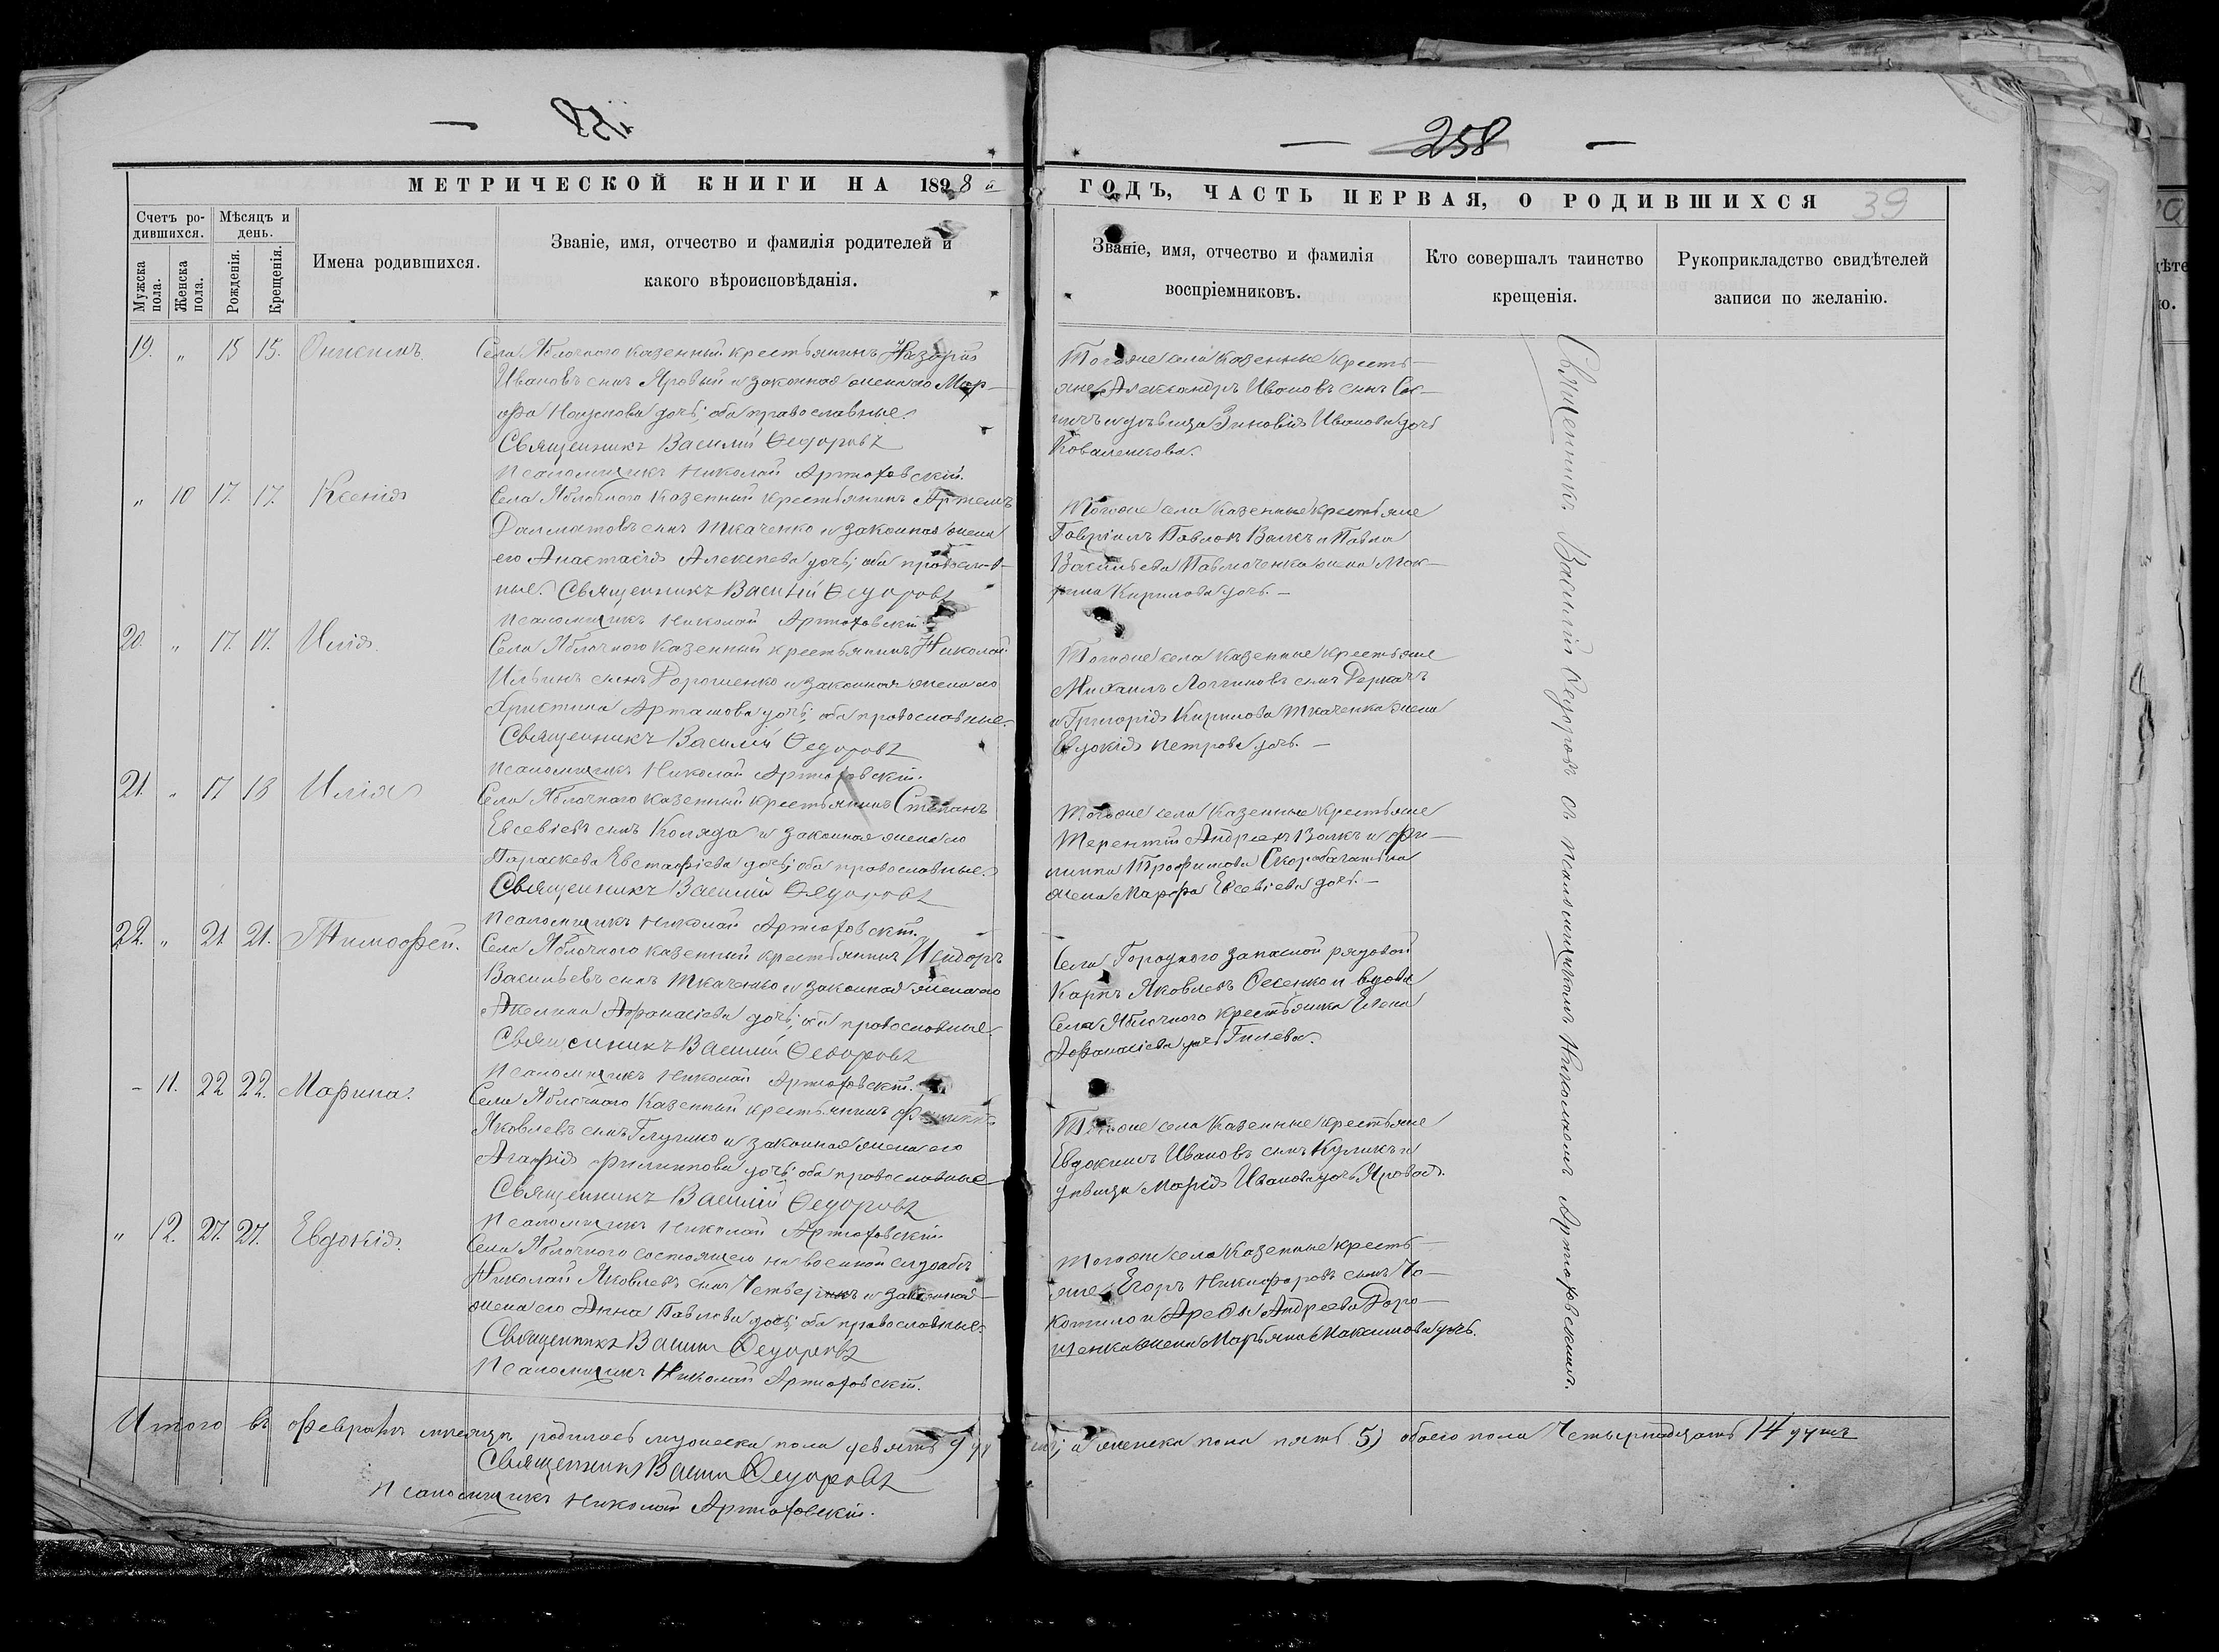 258
МЕТРИЧЕСКОЙ КНИГИ НА 1898 й
Счетъ ро-
дившихся.
Мѣсяцъ и
день.
Мужска
пола.
Женска
пола.
Рожденія.
Крещенія.
Имена родившихся.
Званіе, имя, отчество и фамилія родителей и
какого вѣроисповѣданія.
19. " 15 15. Онисимъ.
Села Яблочного казенный крестьянинъ Назарій
Ивановъ сынъ Яровый и законная жена его Мар-
фа Наумова дочь; оба православные.
Священникъ Василій Ѳедоровъ
Псаломщикъ Николай Артюховскій.
" 10 17. 17. Ксенія
Села Яблочного казенный крестьянинъ Артемъ
Далматовъ сынъ Ткаченко и законная жена
его Анастасія Алексѣева дочь; оба православ-
ные. Священникъ Василій Ѳедоровъ
Псаломщикъ Николай Артюховскій.
20. " 17. 17. Илія.
Села Яблочного казенный крестьянинъ Николай
Ильинъ сынъ Дорошенко и законная жена его
Христина Артамова дочь; оба православные.
Священникъ Василій Ѳедоровъ
Псаломщикъ Николай Артюховскій.
21. " 17 18 Илія
Села Яблочного казенный крестьянинъ Степанъ
Евсевіевъ сынъ Коляда и законная жена его
Параскева Евстафіева дочь; оба православные.
Священникъ Василій Ѳедоровъ
Псаломщикъ Николай Артюховскій.
22. " 21. 21. Тимоѳей.
Села Яблочного казенный крестьянинъ Исидоръ
Васильевъ сынъ Ткаченко и законная жена его
Акелина Афанасіева дочь; оба православные.
Священникъ Василій Ѳедоровъ
Псаломщикъ Николай Артюховскій.
– 11. 22 22. Марина.
Села Яблочного казенный крестьянинъ
Яковлевъ сынъ Глушко и законная жена его
Агафія Филиппова дочь; оба православные
Священникъ Василій Ѳедоровъ
Псаломщикъ Николай Артюховскій
" 12. 27. 27. Евдокія.
Села Яблочного состоящего на военной службѣ
Николай Яковлевъ сынъ и законная
жена его Анна Павлова дочь; оба православные.
Священникъ Василій Ѳедоровъ
Псаломщикъ Николай Артюховскій.
Итого въ Февралѣ мѣсяцѣ родилось мужеска пола девять 9 ду
Священникъ Василій Ѳедоровъ
Псаломщикъ Николай Артюховскій.
258
39
ГОДЪ, ЧАСТЬ ПЕРВАЯ, О РОДИВШИХСЯ
Званіе, имя, отчество и фамилія
воспріемниковъ.
Кто совершалъ таинство
крещенія.
Рукоприкладство свидѣтелей
записи по желанію.
Тогоже села казенные кресть-
яне Александръ Ивановъ сынъ
и дѣвица Зиновія Иванова дочь
Коваленкова.
Тогоже села казенные крестьяне
Гавріилъ Павловъ Волкъ и Павла
Васильева Павлюченка жена Мак-
рина Кирилова дочь.–
Тогоже села казенные крестьяне
Михаилъ Логгиновъ сынъ Деркачъ
и Григорія Кирилова Ткаченка жена
Евдокія Петрова дочь.–
Тогоже села казенные крестьяне
Терентій Андреевъ Волкъ и Фи-
липпа Трофимова Скоробагатька
жена Марфа Евсевіева дочь.–
Села Городного запасной рядовой
Карпъ Яковлевъ Оленко и вдова
Села Яблочного крестьянка Елена
Афанасіева дочь Гилева.
Тогоже села казенные крестьяне
Евдокимъ Ивановъ сынъ Куликъ и
дѣвица Марія Иванова дочь Яровая.
Тогоже села казенные кресть-
яне Егоръ Никифоровъ сынъ Чо-
котило и Андреева Доро-
шенка жена Марьяна Максимова дочь.
Священникъ Василій Ѳедоровъ съ псаломщикомъ Николаемъ Артюховскимъ.
а женска пола пять 5) обоего пола четырнадцать 14 душъ